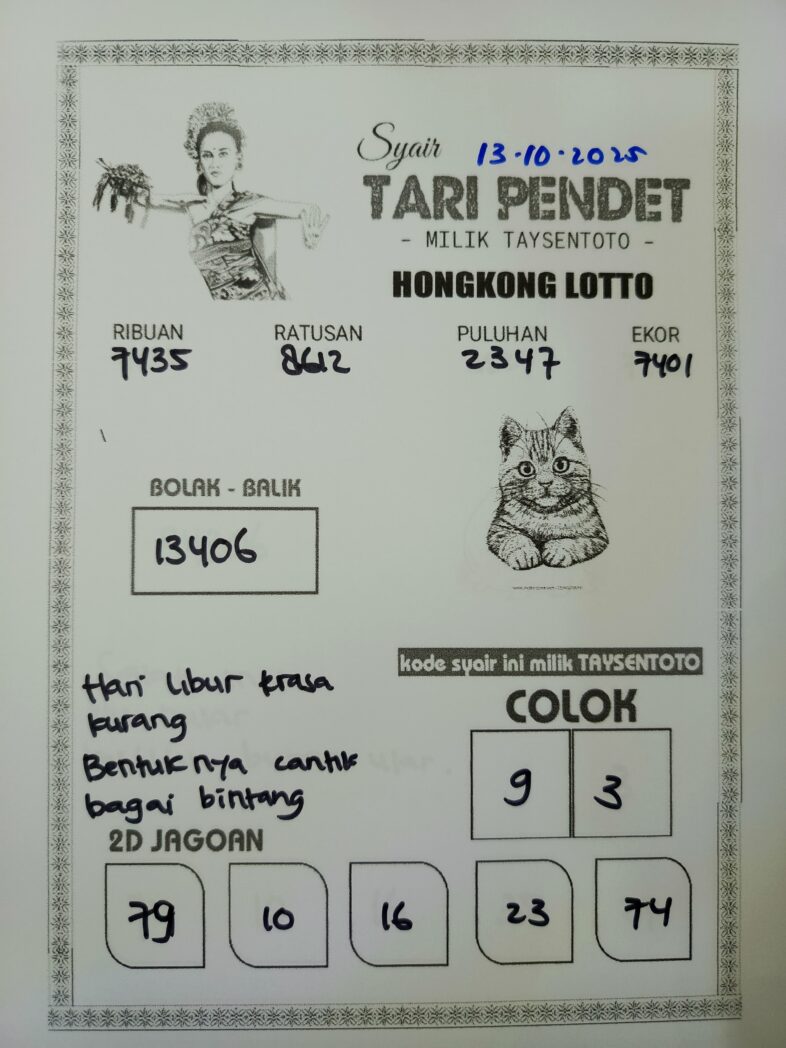 Syair 13.10.2025
TARI PENDET
- MILIK TAYSENTOTO -
HONGKONG LOTTO
RIBUAN RATUSAN PULUHAN EKOR
7435 8612 2347 7401
BOLAK - BALIK
13406
kode syair ini milik TAYSENTOTO
Hari libur krasa
kurang
Bentuknya cantik
bagai bintang
COLOK
9 3
2D JAGOAN
79 10 16 23 74